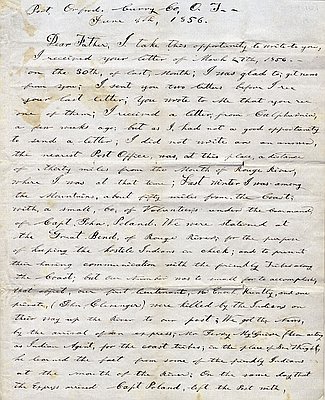 Port Orford, Curry Co, O. T. —
June 4th, 1856.
Dear Father, I take this opportunity to write to you,
I received your letter of March 27th, 1856. —
on the 30th, of last, Month; I was glad to get news
from you; I sent you two letters before I re
your last letter; you wrote to Me that you re
one of them; I received a letter from
a few weeks ago; but as I, had not a good opportunity
to send a letter; I did not write an answer,
the nearest Post Office, was, at this place, a distance
of thirty miles from the Mouth of Rouge River,
where I was at that time; Last winter I was among
the Mountains, about fifty miles from the Coast;
with, a small, Co, of Volunteers under the command,
of Capt, Poland, We were stationed at
the Great Bend, of Rouge River; for the purpose
of keeping the hostile Indians in check; and to prevent
their having communication with the friendly Tribes along
the Coast; but our Number was to small, for to accomplish,
that object; our first lieutenant, and one
private, (Clevenger) were killed by the Indians
their way up the River to our post; We got the News,
by the arrival of an express; Mr
as Indian, Agent, for the coast tribes; in the place of Ben Wright,
he learned the fact from some of the friendly Indians
at the Mouth of the River; On the same day that
the Express arrived Capt Poland, left the Post with,